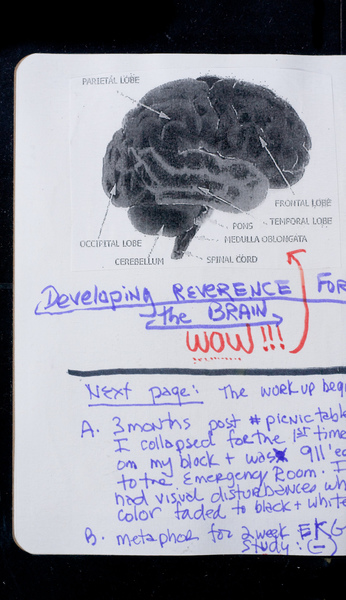 PARIETAL LOBE
FRONTAL LOBE
TEMPORAL LOBE
PONS
MEDULLA OBLONGATA
OCCIPITAL LOBE
SPINAL CORD
CEREBELLUM
Developing REVERENCE FOR
the BRAIN
WOW!!!
Next page: The workup begi
A. 3 months post # picnic table
I collapsed for the 1st time
on my block + was 911'ed
to the Emergency Room. I
had visual disturbances wh
color faded to black + white
B. metaphor for 2 week EKG
study: (-)